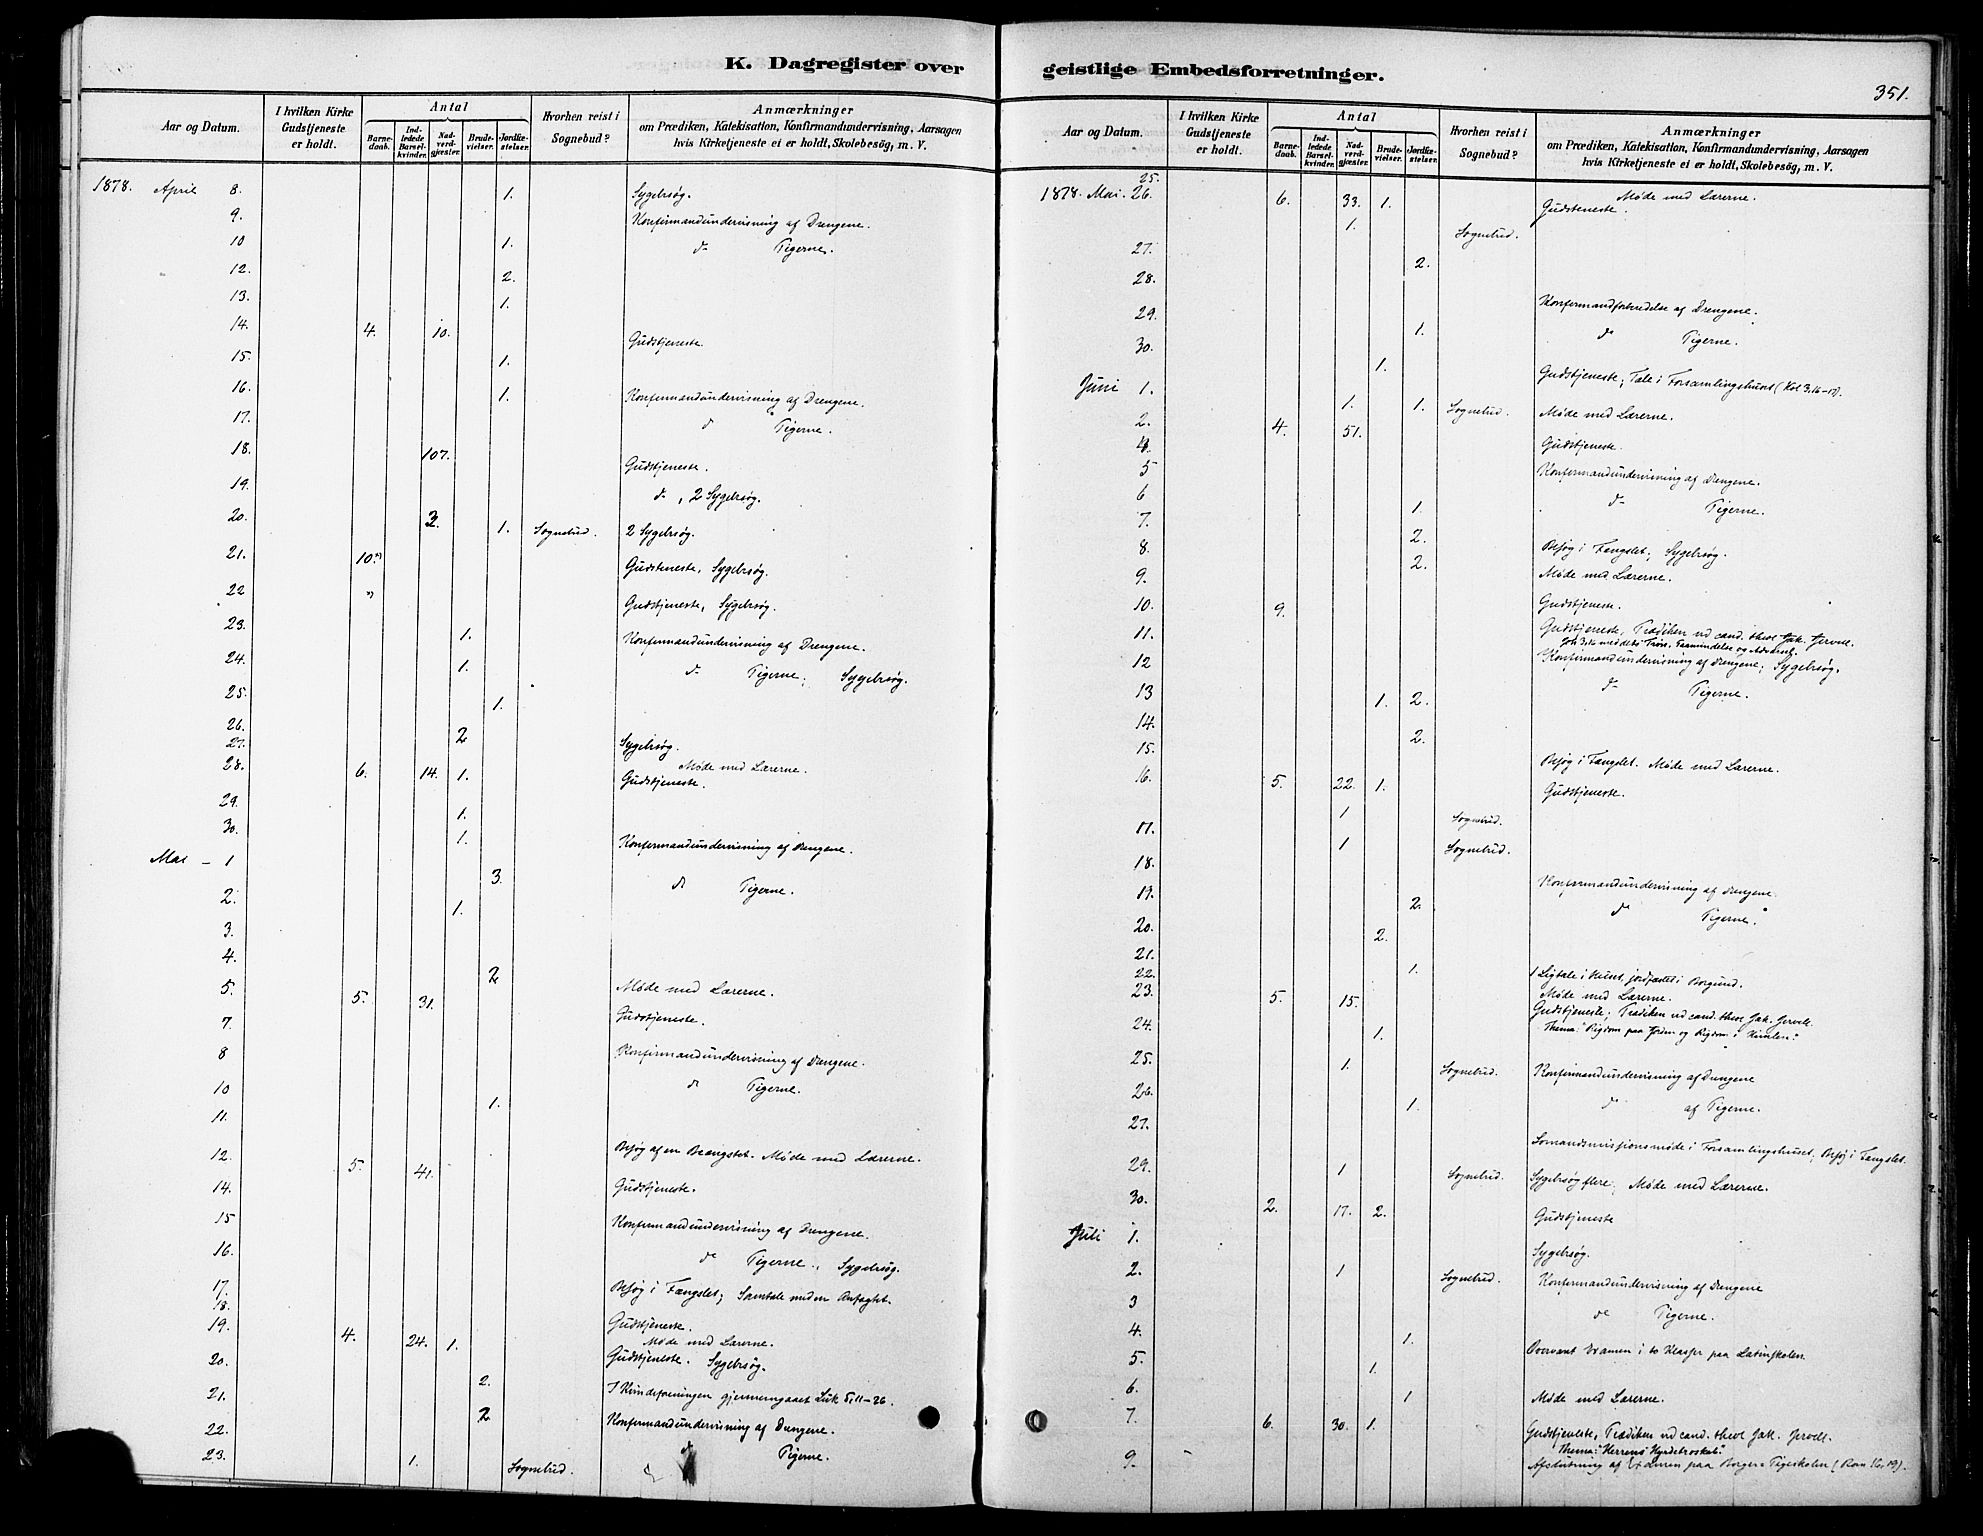 K. Dagregister over
Aar og Datum. I hvilken Kirke Gudstjeneste er holdt. Antal Barnedaab. Indledede Barselkvinder. Nadverdgjæster. Brudevielser. Jordfæstelser. Hvorhen reist i Sognebud? Anmærkninger om Prædiken, Katekisation, Konfirmandundervisning, Aarsagen hvis Kirketjeneste ei er holdt, Skolebesög, m. V.
1878. April 8. 1. Sygebsøg.
9. Konfirmandundervisning af Drengene.
10 1. do Pigerne.
12. 2.
13. 1.
14. 4. 10. Gudstjeneste.
15. 1.
16. 1. Konfirmandundervisning af Drengene.
17. do Pigerne.
18. 107. Gudstjeneste.
19. do, 2 Sygebsøg.
20. 2. 1. Sognebud. 2 Sygebsøg.
21. 10. Gudsteneste, Sygebsøg.
22 Gudstjeneste, Sygebsøg.
23. 1. Konfirmandundervisning af Drengene.
24. 1. do Pigerne; Sygebsøg.
25. 1.
26.
27. 2 Sygebsøg.
Møde med Lærerne.
28. 6. 14. 1. Gudstjeneste.
29. 1.
30. 1. Konfirmandundervisning af Drengene.
Mai – 1 3. do Pigerne.
2. 1.
3.
4. 2 Møde med Lærerne.
5. 5. 31. Gudstjeneste.
7. Konfirmandundervisning af Drengene.
8 do Pigerne.
10 1.
11. Besøg af en Beængstet. Møde med Lærerne.
12. 5. 41. Gudstjeneste.
14. Konfirmandundervisning af Drengene.
15 do Pigerne., Sygebsøg.
16. Besøg i Fængslet; Samtale med en Anfægtet.
17.
18. Gudstjeneste.
Møde med Lærerne.
19. 4. 24. 1. Gudstjeneste. Sygebsøg.
20. 2. I Kvindeforeningen gjennemgaaet Luk 5,11–26.
21. 2 Konfirmandundervisning af Drengene.
22. do Pigerne.
23. 1. Sognebud.
geistlige Embedsforretninger.
351.
Aar og Datum. I hvilken Kirke Gudstjeneste er holdt. Antal Barnedaab. Indledede Barselkvinder. Nadverdgjæster. Brudevielser. Jordfæstelser. Hvorhen reist i Sognebud? Anmærkninger om Prædiken, Katekisation, Konfirmandundervisning, Aarsagen hvis Kirketjeneste ei er holdt, Skolebesög, m. V.
25. Møde med Lærerne.
1878. Mai. 26. 6. 33. 1. Gudsteneste.
1. Sognebud.
27. 2.
28. Konfirmandforberedelse af Drengene.
29. 1. do Pigerne.
30. 1. Gudstjeneste; Tale i Forsamlingshuset (Kol 3,16–17).
Juni 1. 1. 1. Sognebud. Møde med Lærerne.
2. 4. 51. Gudstjeneste.
4. Konfirmandundervisning af Drengene.
5 do Pigerne.
6 1.
7. 2. Besøg i Fængslet; Sygebsøg.
8. 2. Møde med Lærerne.
9. Gudstjeneste.
10. 9. Gudstjeneste, Prædiken ved cand. theol Jak. Jervell.
11. Konfirmandundervisning af Drengene; Sygebsøg.
12 do Pigerne.
13 1. 2.
14. 2.
15. Besøg i Fængslet. Møde med Lærerne.
16. 5. 22. 1. Gudstjeneste.
1 Sognebud.
17. 1 Sognebud.
18. Konfirmandundervisning af Drengene.
19. 2. do Pigerne.
20. 2.
21. 1. 1 Ligtale i Huset, jordfæstet i Borgund.
22. Møde med Lærerne.
23. 5. 15. Gudstjeneste; Prædiken ved cand. theol Jak. Jervell.
Thema: "Rigdom paa Jorden og Rigdom i Himlen."
24. 1.
25. 1. Sognebud. Konfirmandundervisning af Drengene
26. 1. do af Pigerne.
27. Sømandsmissionsmøde i Forsamlingshuset; Besøg i Fængslet.
29. 1 Sognebud. Sygebsøg flere; Møde med Lærerne.
30. 2. 17. 2. Gudstjeneste
Juli 1. Sygebsøg.
2. 1 Sognebud. Konfirmandundervisning af Drengene
3 do Pigerne.
4. 1. Overvært Examen i to Klasser paa Latinskolen.
5. 1.
6. 1 Møde med Lærerne.
7. 6. 30. 1. Gudstjeneste, Prædiken ved cand. theol Jak. Jervell.
Thema: "Herrens Hyrdetroskab."
9. Afslutning af Examen paa Borger- & Pigeskolen (Rom 16,19).